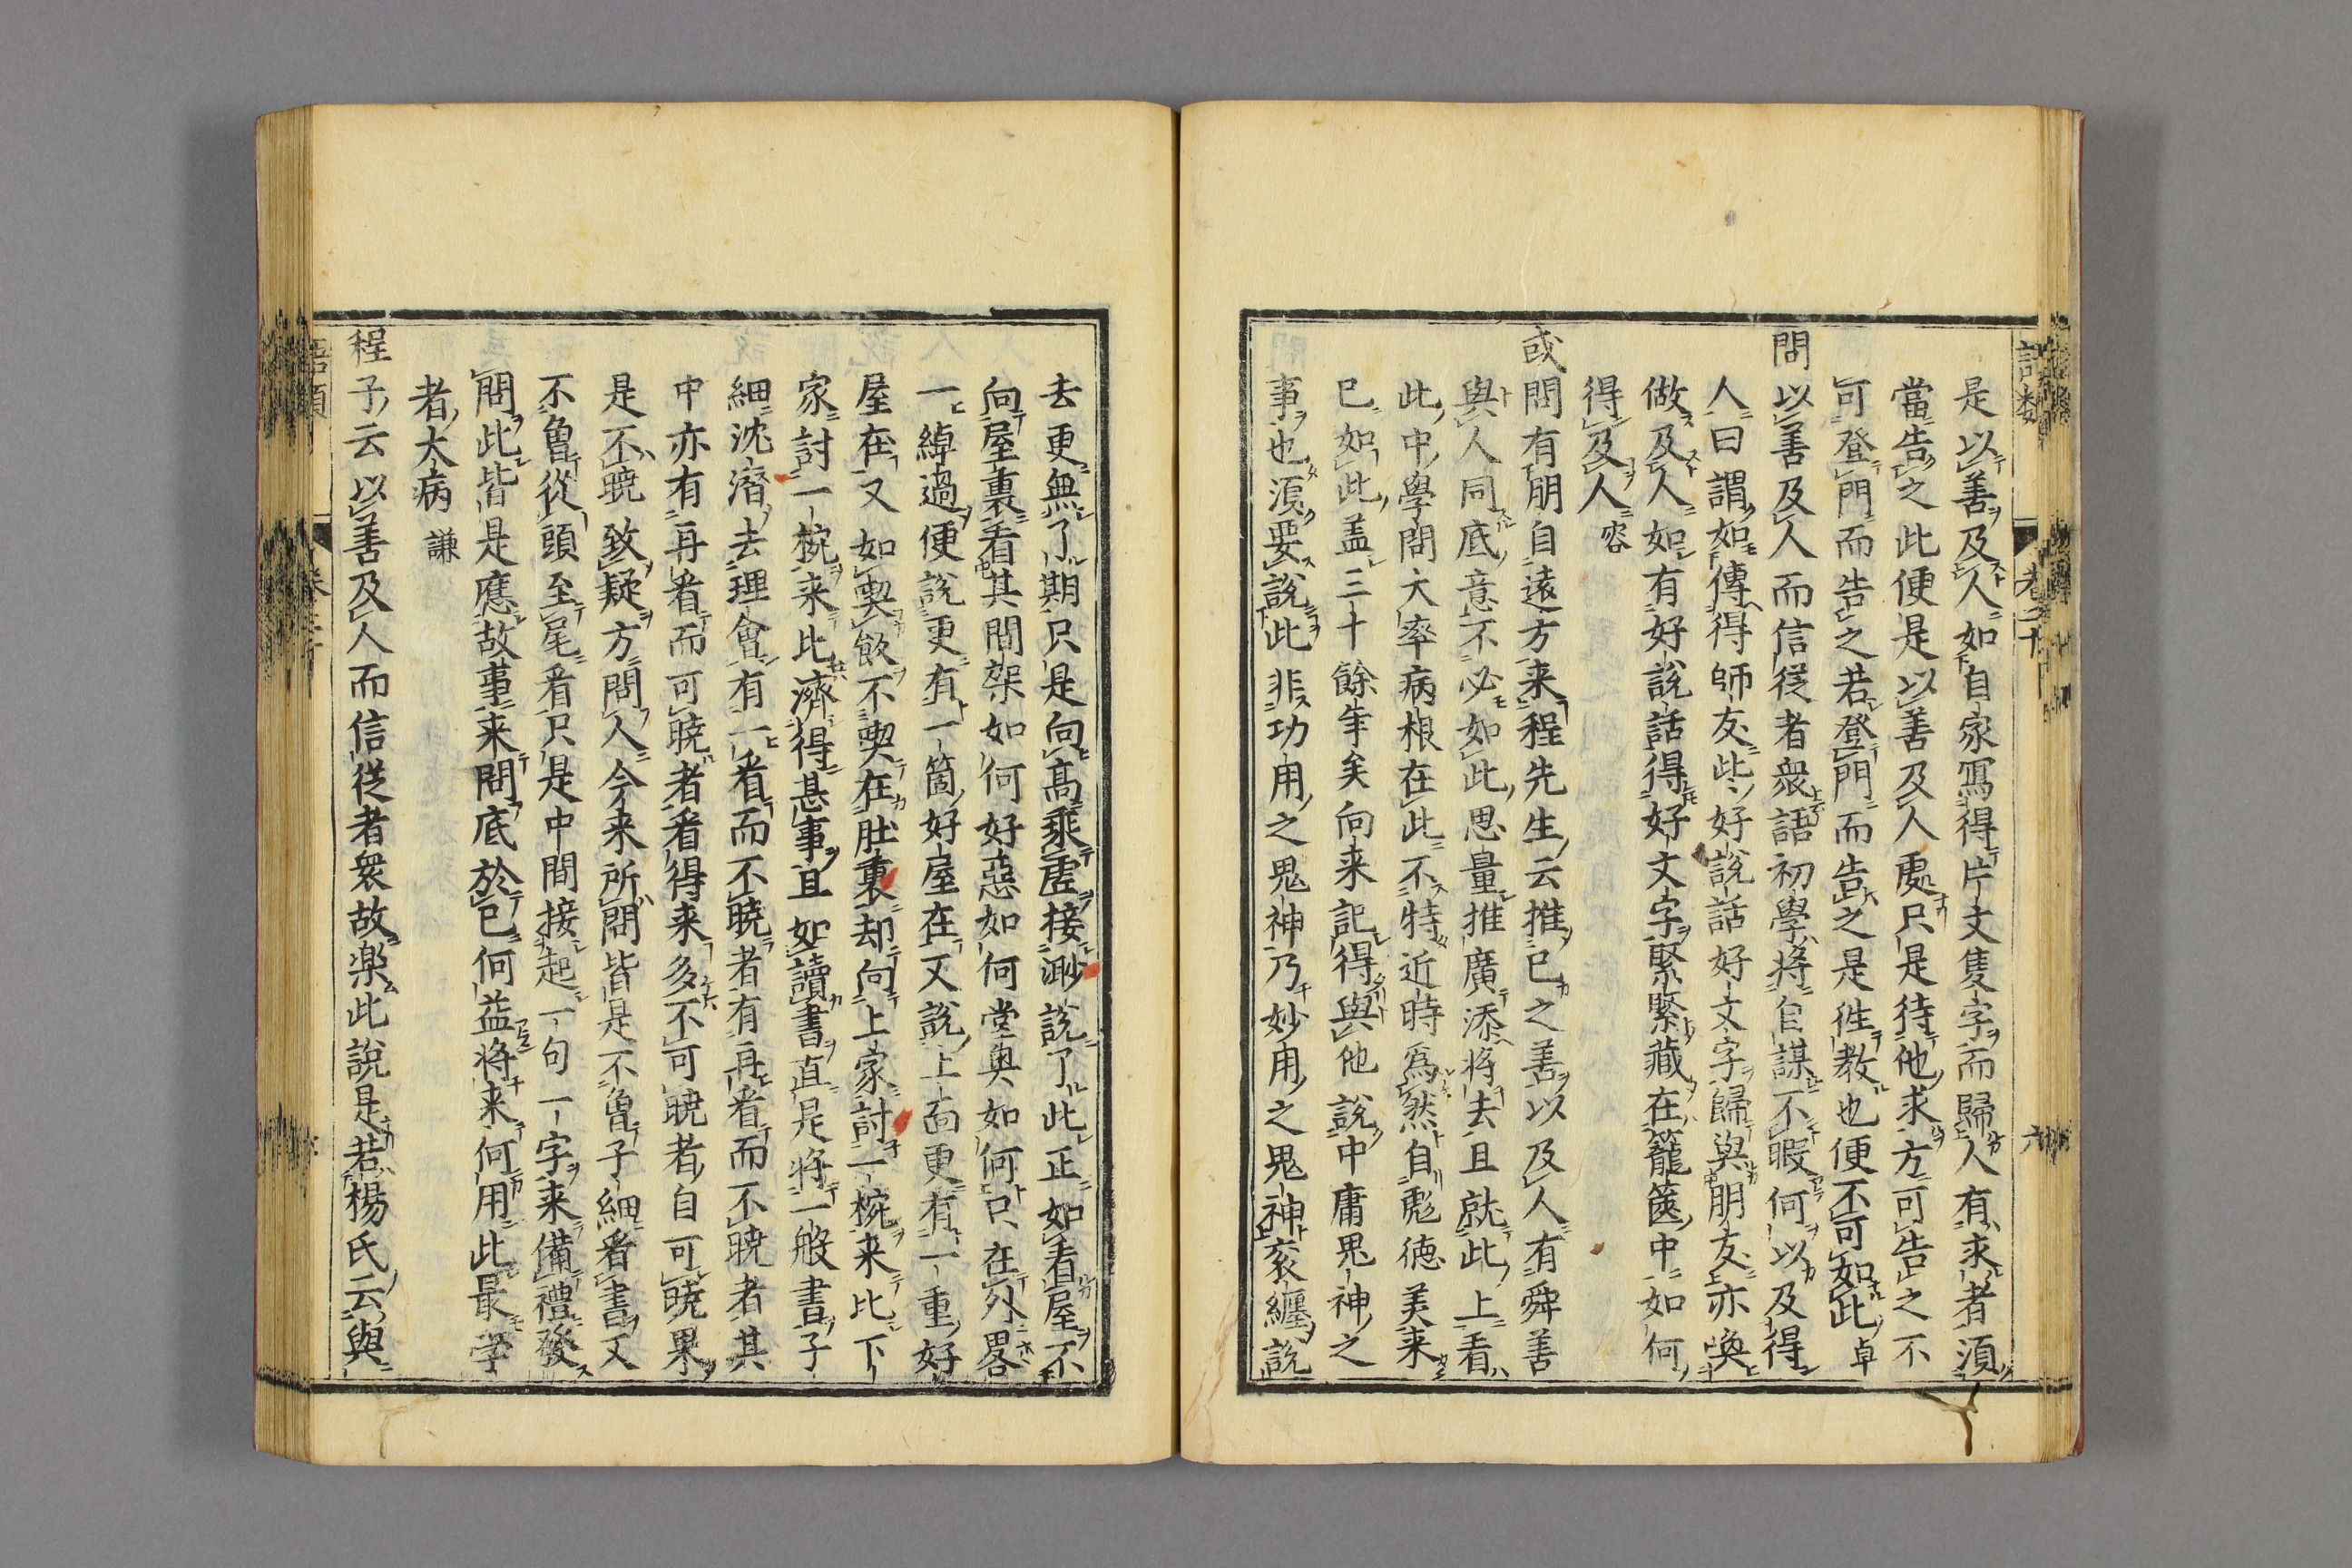 是以善及人如自家寫得片文隻字而歸人有求者須
當告之此便是以善及人處只是待他求方可告之不
可登門而告之若登門而告之是徃教也便不可如此卓
問以善及人而信從者衆語初學將自謀不暇何以及得
人曰謂如傳得師友些好說話好文字歸與朋友亦喚
做及人如有好說話得好文字緊緊藏在籠篋中如何
得及人 容
或問有朋自遠方来程先生云推已之善以及人有舜善
與人同底意不必如此思量推廣添將去且就此上看
此中學問大率病根在此不特近時爲然自彪徳美来
已如此盖三十餘年矣向来記得與他說中庸鬼神之
事也須要說此非功用之鬼神乃妙用之鬼神衮纒說
去更無了期只是向髙乘虚接渺說了此正如看屋不
向屋裏看其間架如何好惡如何堂奥如何只在外畧
一綽過便說更有一箇好屋在又說上面更有一重好
屋在又如喫飲不喫在肚裏却向上家討一椀来比下
家討一椀来比濟得甚事且如讀書直是將一般書子
細沈潜去理會有一看而不暁者有再看而不暁者其
中亦有再看而可暁者看得来多不可暁者自可暁果
是不暁致疑方問人今来所問皆是不曾子細看書又
不曾從頭至尾看只是中間接起一句一字来備禮發
問此皆是應故事来問底於已何益將来何用此最学
者大病 謙
程子云以善及人而信從者衆故楽此說是若楊氏云與
語類
卷二十
六